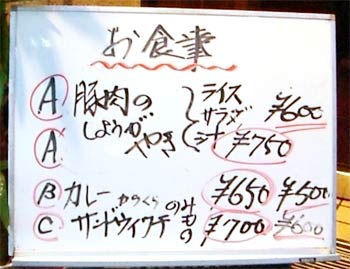 お食事
A 豚肉の ライス
しょうが サラダ ¥600
A' やき 汁 ¥750
B カレー のみ ¥650 ¥500
C サンドウィッチ もの ¥700 ¥600